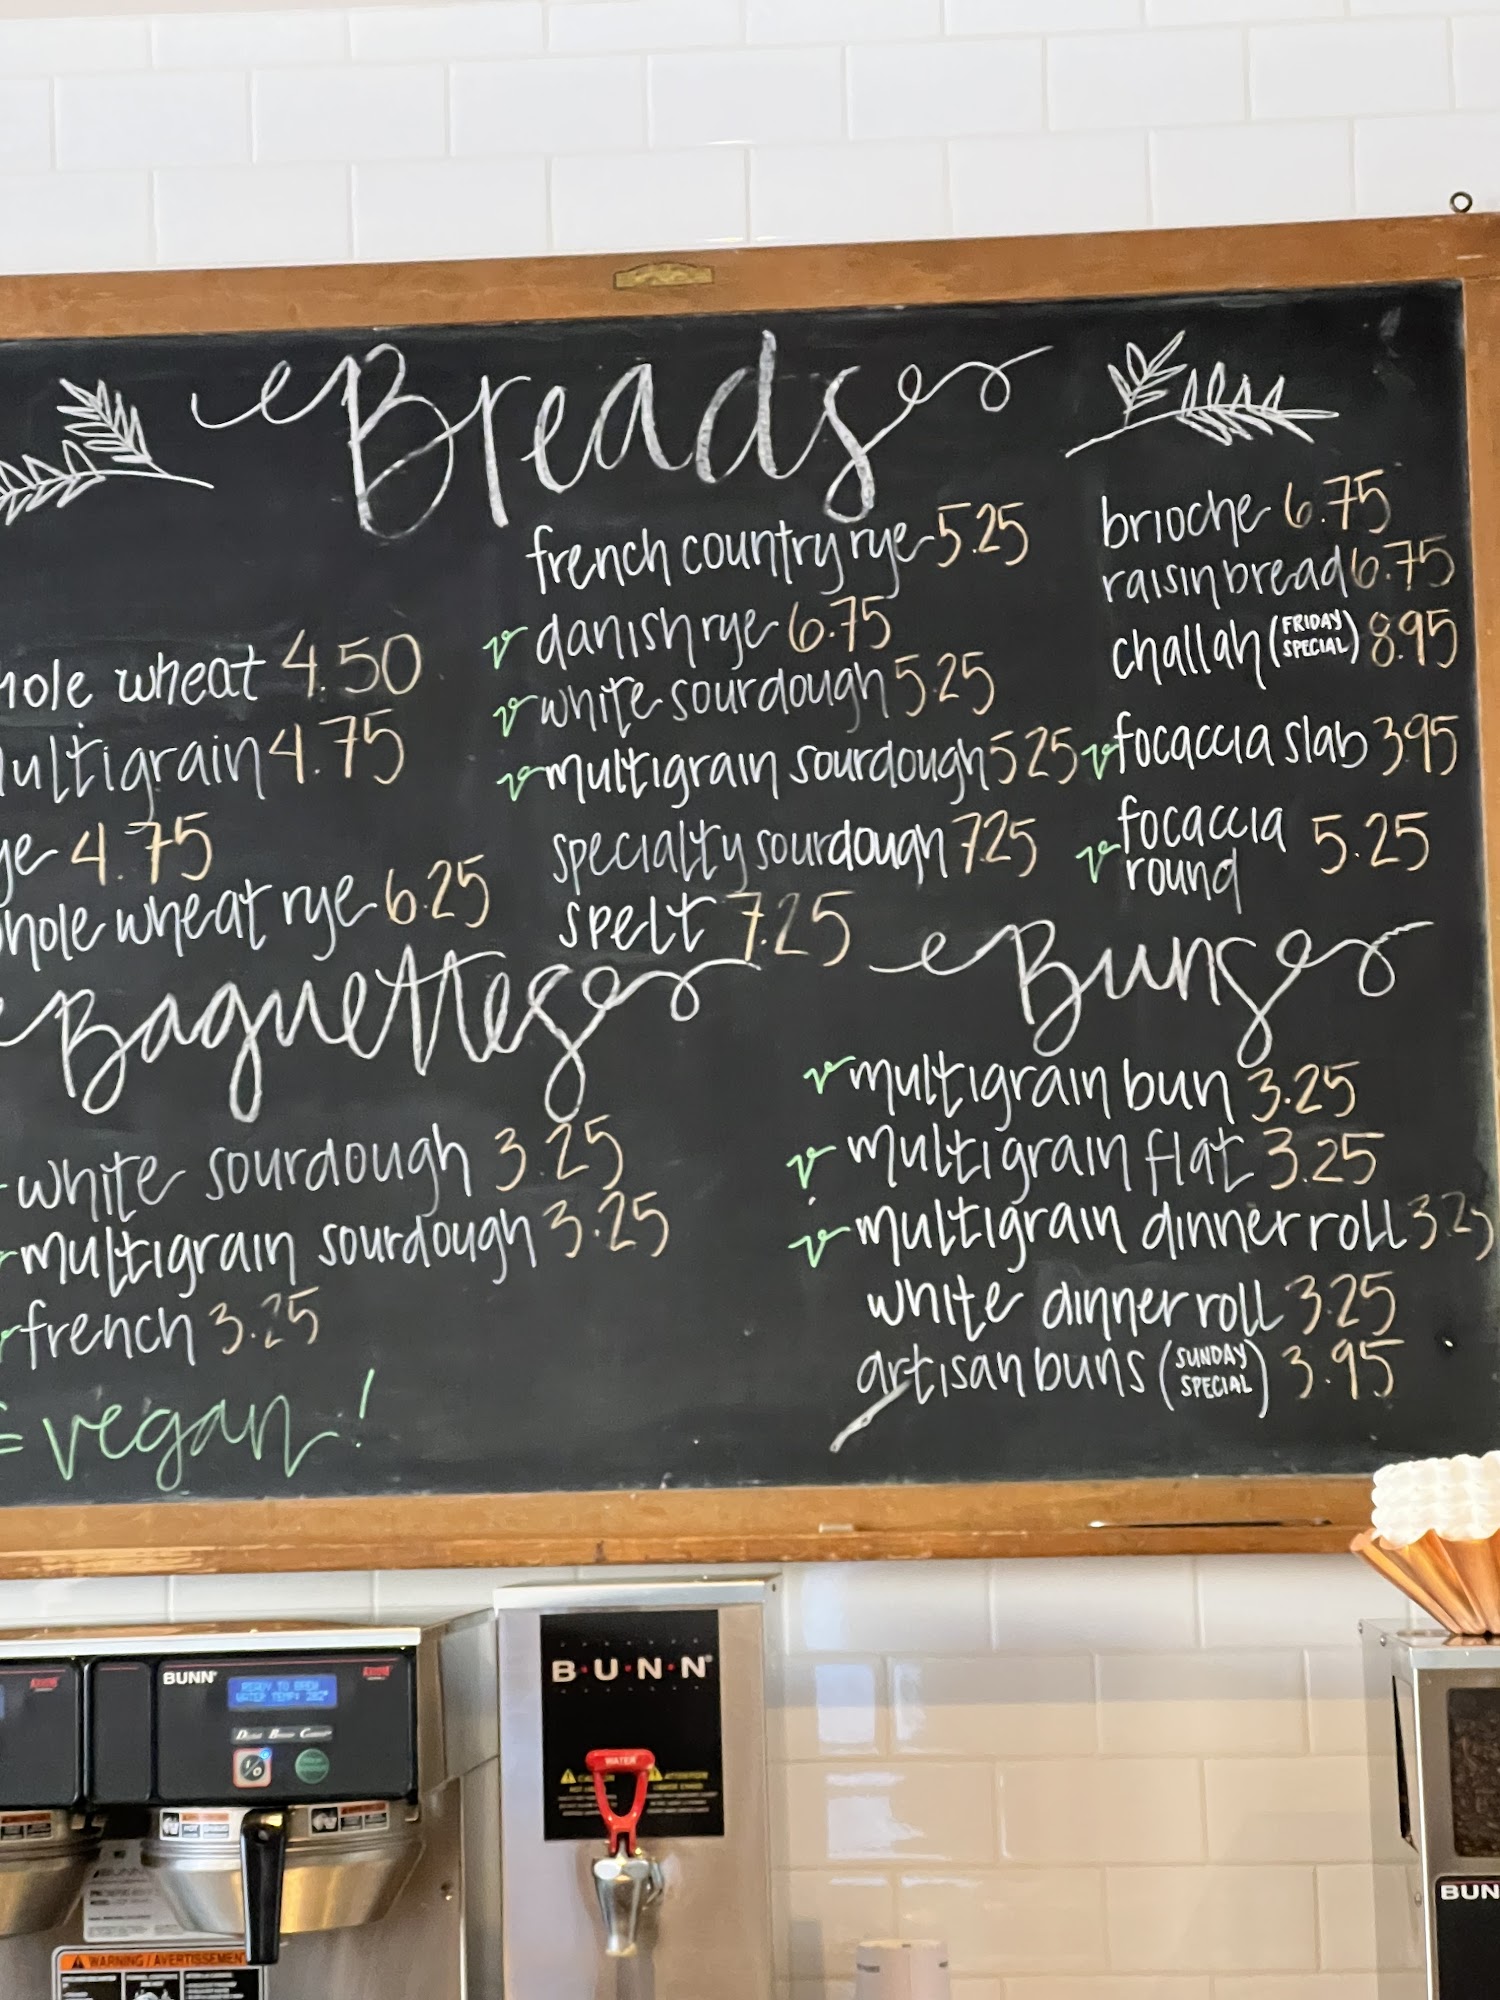 Breads
hole wheat 4.50
ultigrain 4.75
ye 4.75
hole wheat rye 6.25
french country rye 5.25
v danish rye 6.75
v white sourdough 5.25
v multigrain sourdough 5.25
specialty sourdough 7.25
spelt 7.25
brioche 6.75
raisin bread 6.75
challah (FRIDAY SPECIAL) 8.95
v focaccia slab 3.95
v focaccia round 5.25
Baguettes
white sourdough 3.25
multigrain sourdough 3.25
french 3.25
= vegan!
Buns
v multigrain bun 3.25
v multigrain flat 3.25
v multigrain dinner roll 3.25
white dinner roll 3.25
artisan buns (SUNDAY SPECIAL) 3.95
BUNN
READY TO BREW
WATER TEMP: 202°
B·U·N·N
WATER
CAUTION
ATTENTION
BUNN
WARNING / AVERTISSEMENT
BUN